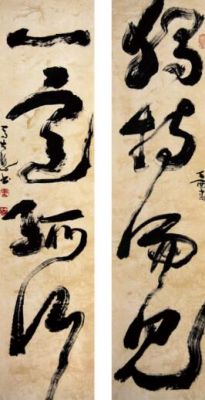 獨特偏見
一意孤行